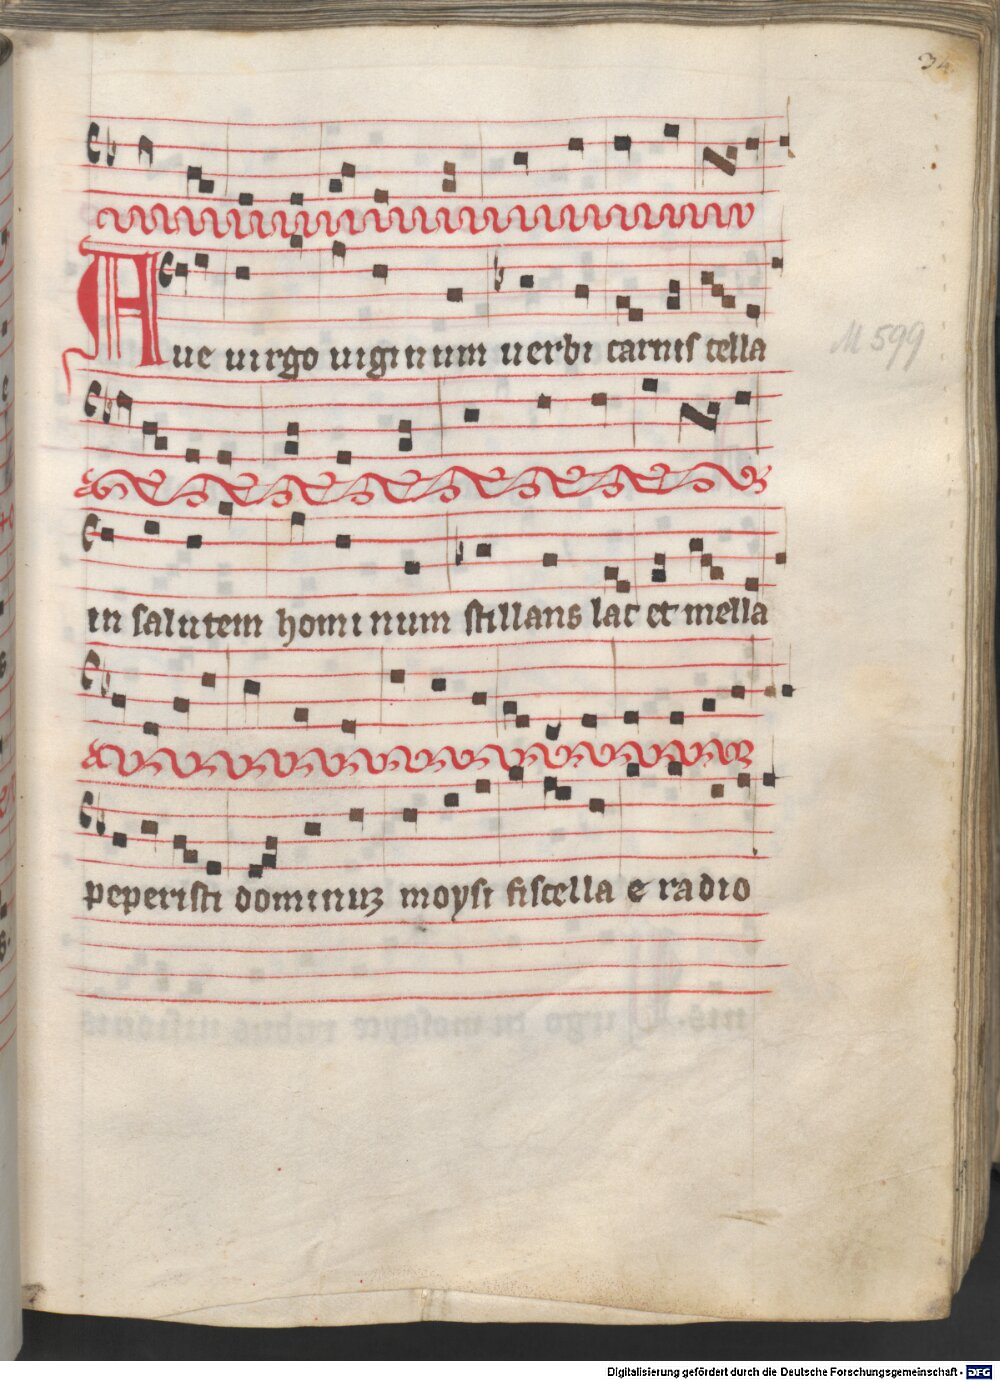 34
Aue uirgo uiginum uerbi carnis cella
M 599
in salutem hominum stillans lac et mella
peperisti dominuꝫ moysi fiscella e radio
Digitalisierung gefördert durch die Deutsche Forschungsgemeinschaft - DFG